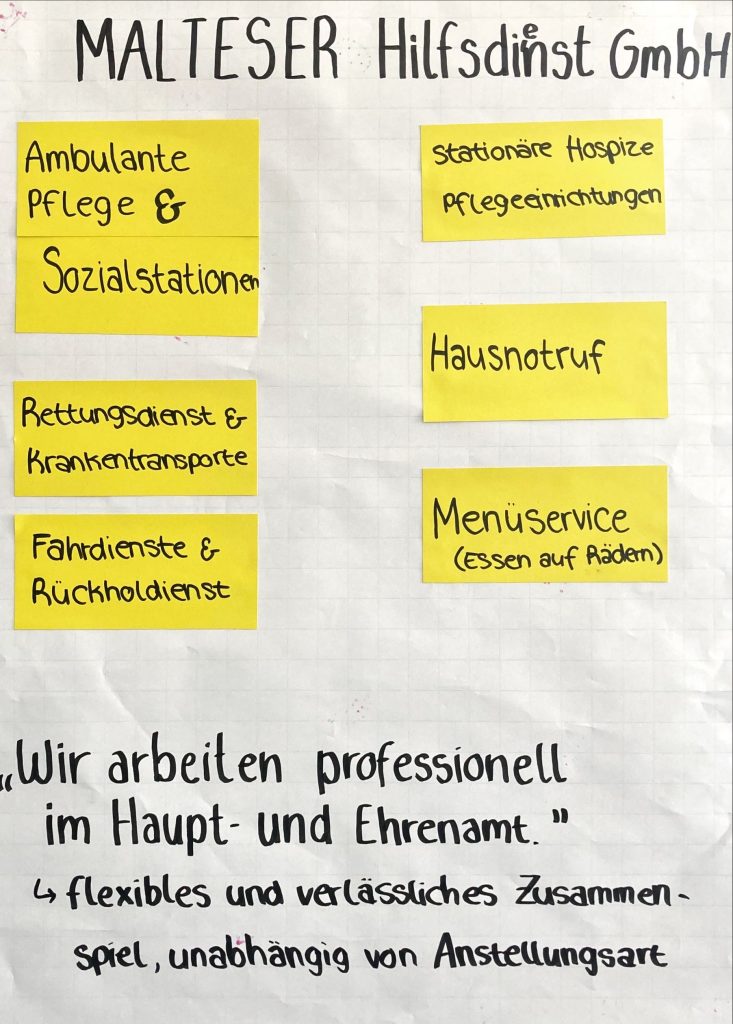 MALTESER Hilfsdienst GmbH
Ambulante
Pflege &
Sozialstationen
Rettungsdienst &
Krankentransporte
Fahrdienste &
Rückholdienst
Stationäre Hospize
Pflegeeinrichtungen
Hausnotruf
Menüservice
(Essen auf Rädern)
„Wir arbeiten professionell
im Haupt- und Ehrenamt."
↳ flexibles und verlässliches Zusammen-
spiel, unabhängig von Anstellungsart